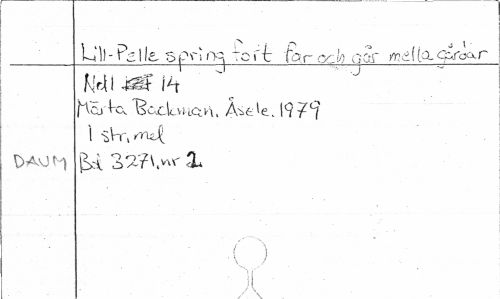 Lill-Pelle spring fort far och går mella gårdar
Nd1 14
Märta Backman. Åsele. 1979
1 str, mel
DAUM Bd 3271, nr 2